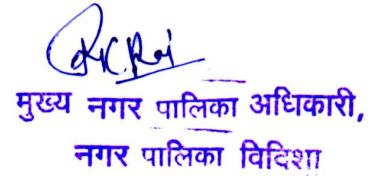 मुख्य नगर पालिका अधिकारी,
नगर पालिका विदिशा